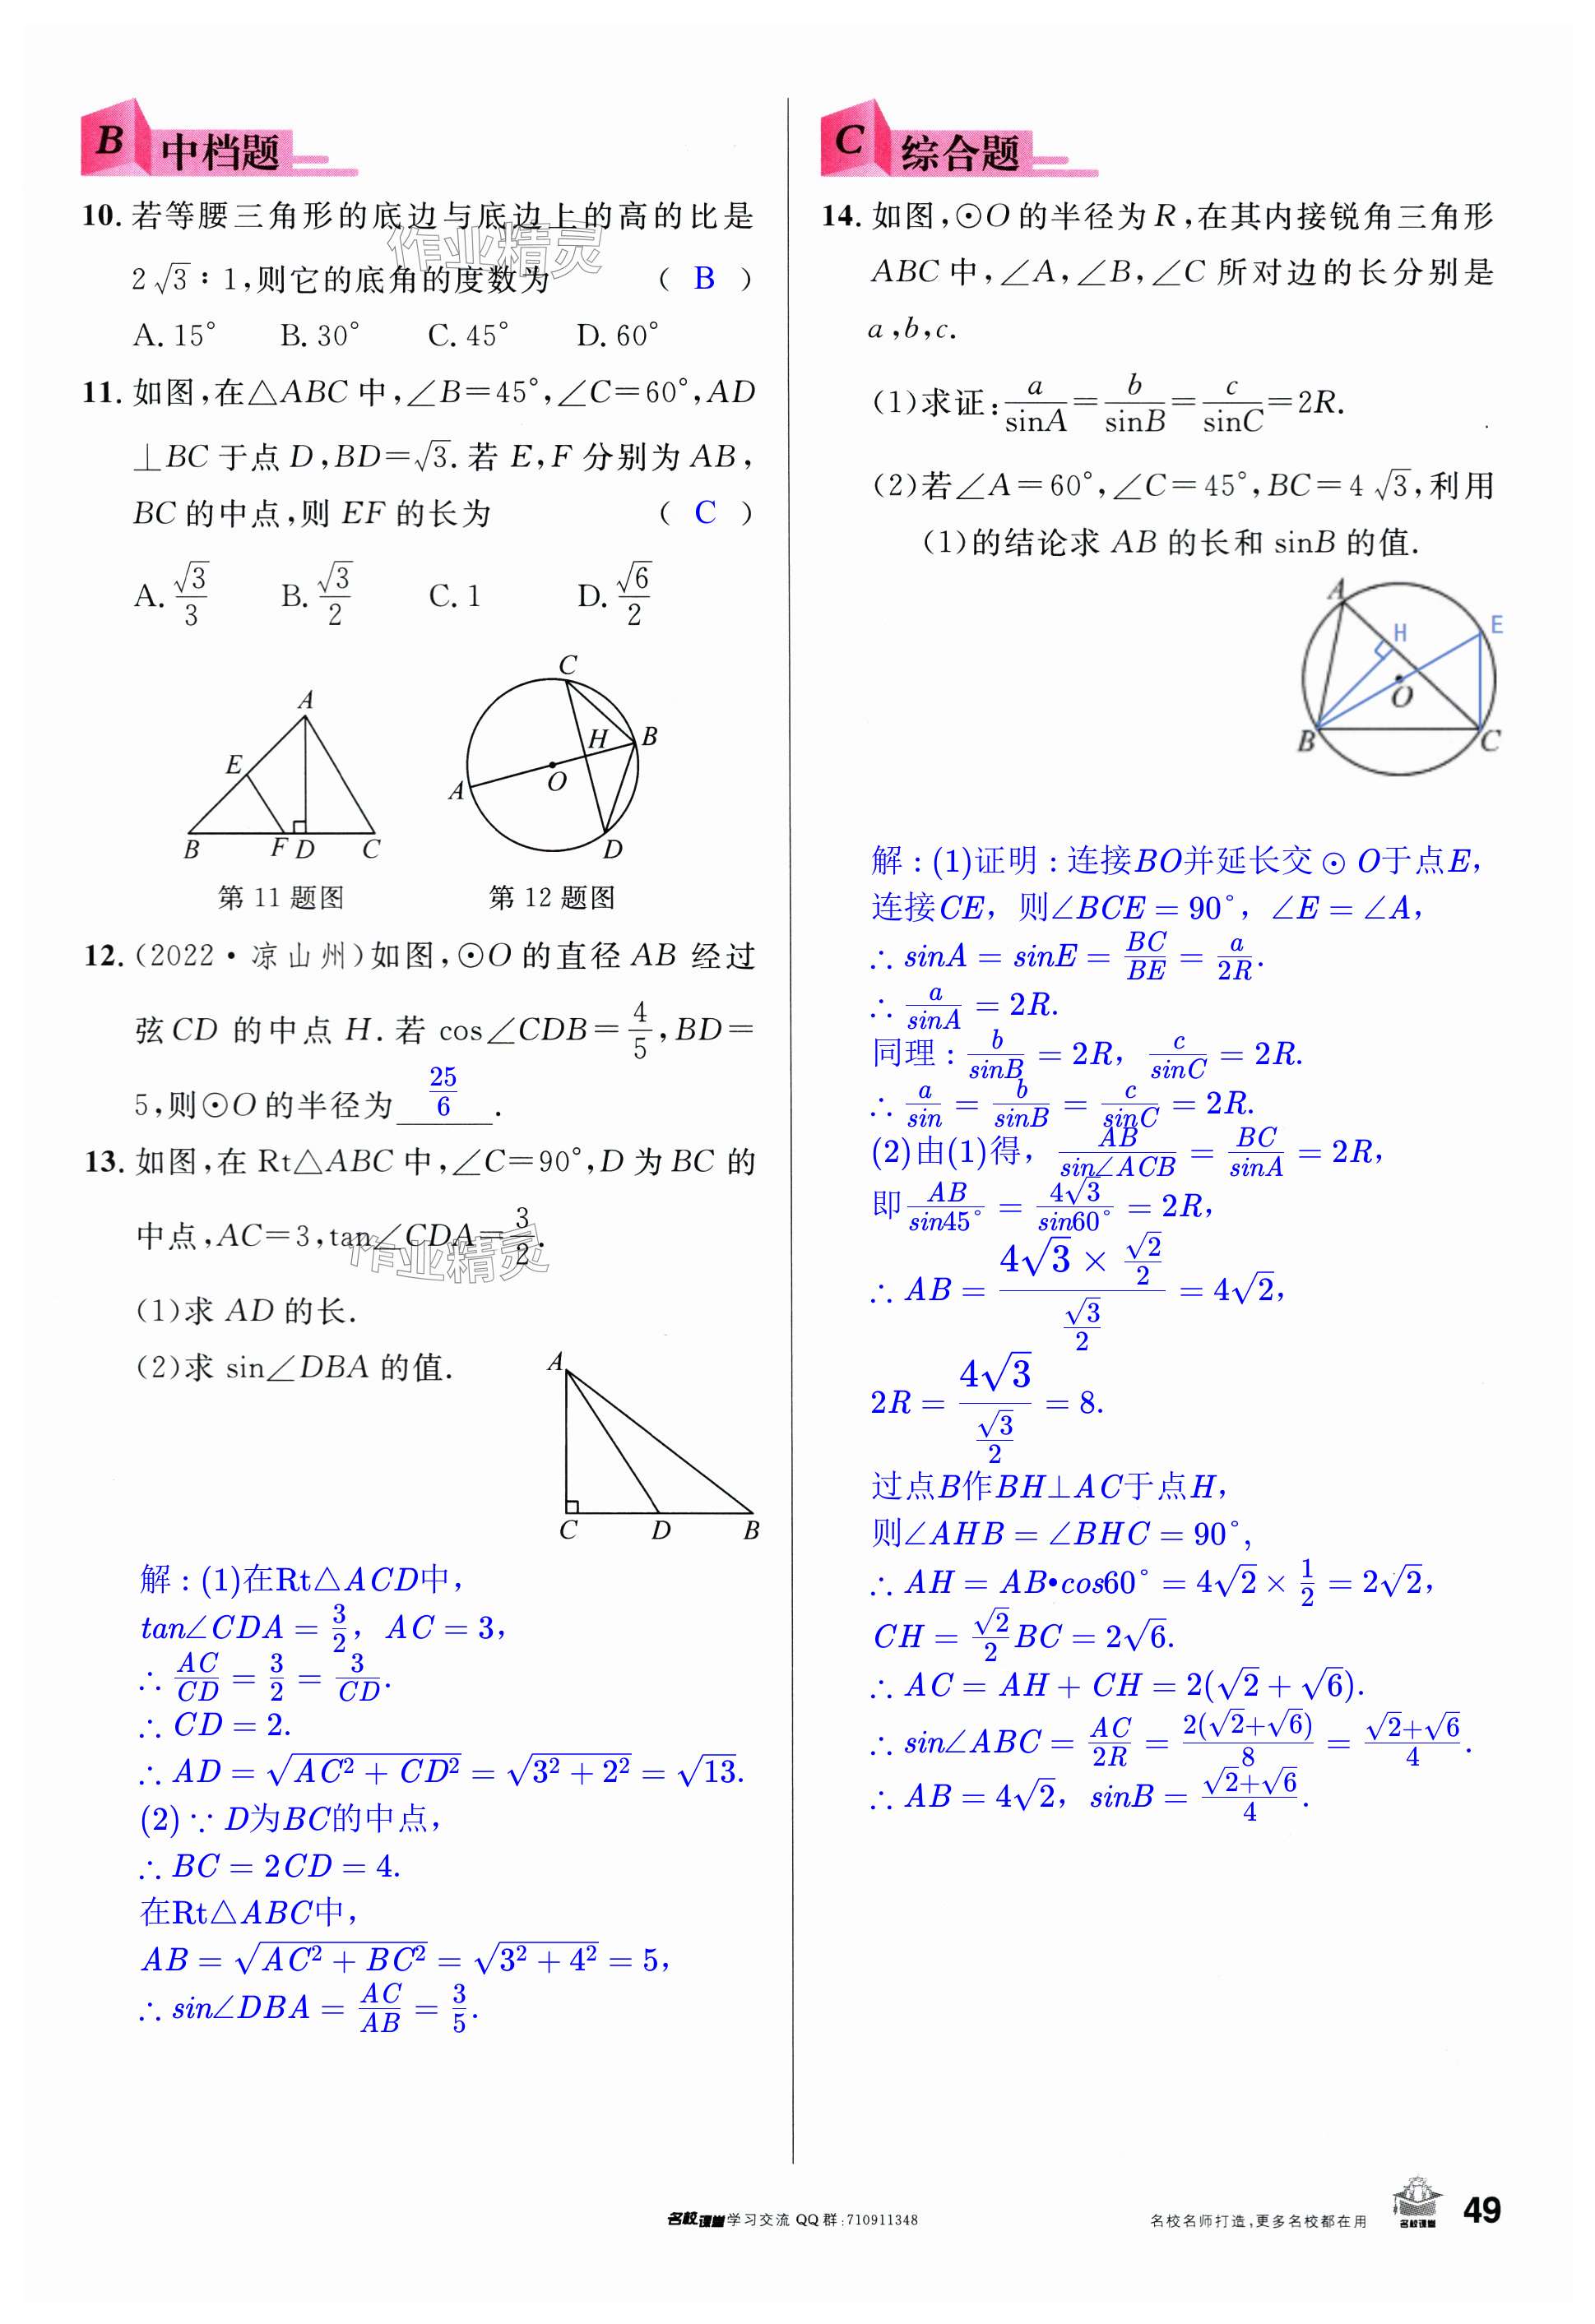 B 中档题
10. 若等腰三角形的底边与底边上的高的比是
2√3∶1,则它的底角的度数为 ( B )
A. 15° B. 30° C. 45° D. 60°
11. 如图,在△ABC中,∠B=45°,∠C=60°,AD
⊥BC于点D,BD=√3. 若E,F分别为AB,
BC的中点,则EF的长为 ( C )
A. √3/3 B. √3/2 C. 1 D. √6/2
A
E
B F D C
第11题图
C
H B
O
A
D
第12题图
12. (2022·凉山州)如图,⊙O的直径AB经过
弦CD的中点H. 若cos∠CDB=4/5,BD=
5,则⊙O的半径为 25/6 .
13. 如图,在Rt△ABC中,∠C=90°,D为BC的
中点,AC=3,tan∠CDA=3/2.
(1)求AD的长.
(2)求sin∠DBA的值.
A
C D B
解:(1)在Rt△ACD中,
tan∠CDA=3/2, AC=3,
∴ AC/CD=3/2=3/CD.
∴ CD=2.
∴ AD=√(AC²+CD²)=√(3²+2²)=√13.
(2)∵ D为BC的中点,
∴ BC=2CD=4.
在Rt△ABC中,
AB=√(AC²+BC²)=√(3²+4²)=5,
∴ sin∠DBA=AC/AB=3/5.
C 综合题
14. 如图,⊙O的半径为R,在其内接锐角三角形
ABC中,∠A,∠B,∠C所对边的长分别是
a,b,c.
(1)求证:a/sinA=b/sinB=c/sinC=2R.
(2)若∠A=60°,∠C=45°,BC=4√3,利用
(1)的结论求AB的长和sinB的值.
A
H E
O
B C
解:(1)证明:连接BO并延长交⊙O于点E,
连接CE, 则∠BCE=90°, ∠E=∠A,
∴ sinA=sinE=BC/BE=a/2R.
∴ a/sinA=2R.
同理:b/sinB=2R, c/sinC=2R.
∴ a/sin=b/sinB=c/sinC=2R.
(2)由(1)得, AB/sin∠ACB=BC/sinA=2R,
即AB/sin45°=4√3/sin60°=2R,
∴ AB=(4√3×√2/2)/(√3/2)=4√2,
2R=4√3/(√3/2)=8.
过点B作BH⊥AC于点H,
则∠AHB=∠BHC=90°,
∴ AH=AB•cos60°=4√2×1/2=2√2,
CH=√2/2BC=2√6.
∴ AC=AH+CH=2(√2+√6).
∴ sin∠ABC=AC/2R=2(√2+√6)/8=(√2+√6)/4.
∴ AB=4√2, sinB=(√2+√6)/4.
作业精灵
作业精灵
名校课堂学习交流QQ群:710911348
名校名师打造,更多名校都在用 名校课堂 49